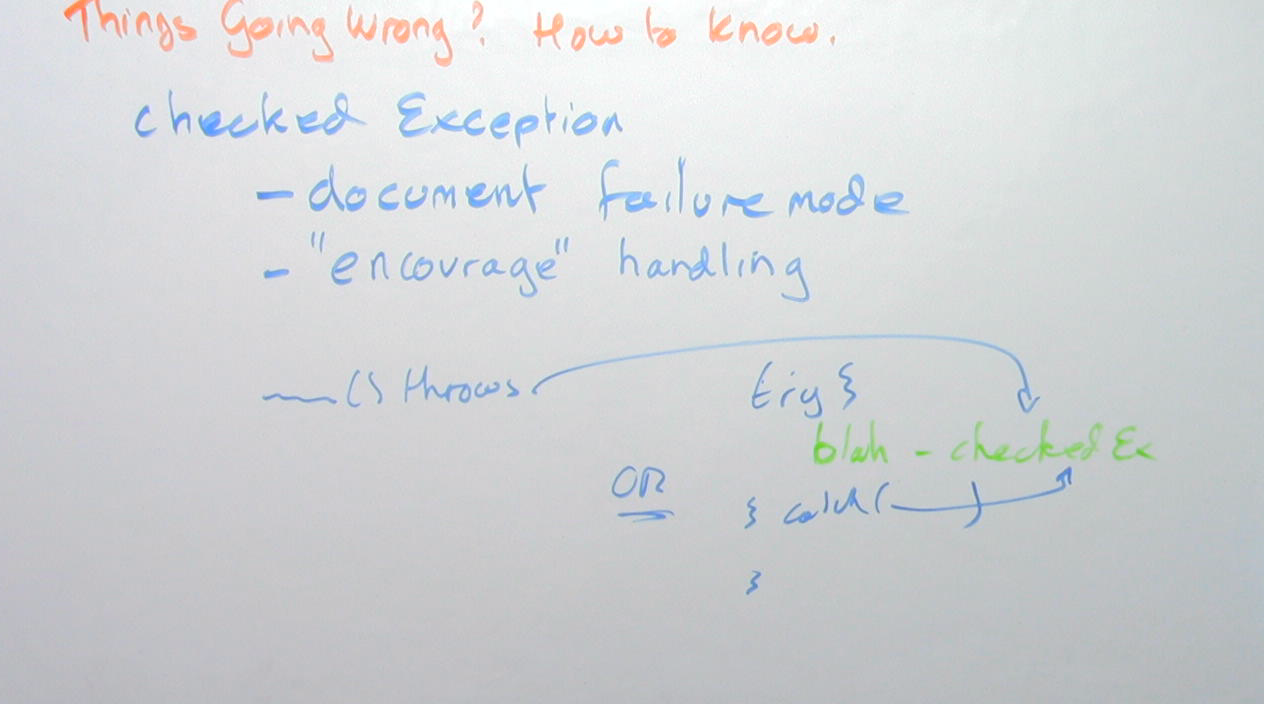 Things Going Wrong? How to know.
checked Exception
- document failure mode
- "encourage" handling
() throws
try {
blah - checked Ex
OR
} catch ( )
}